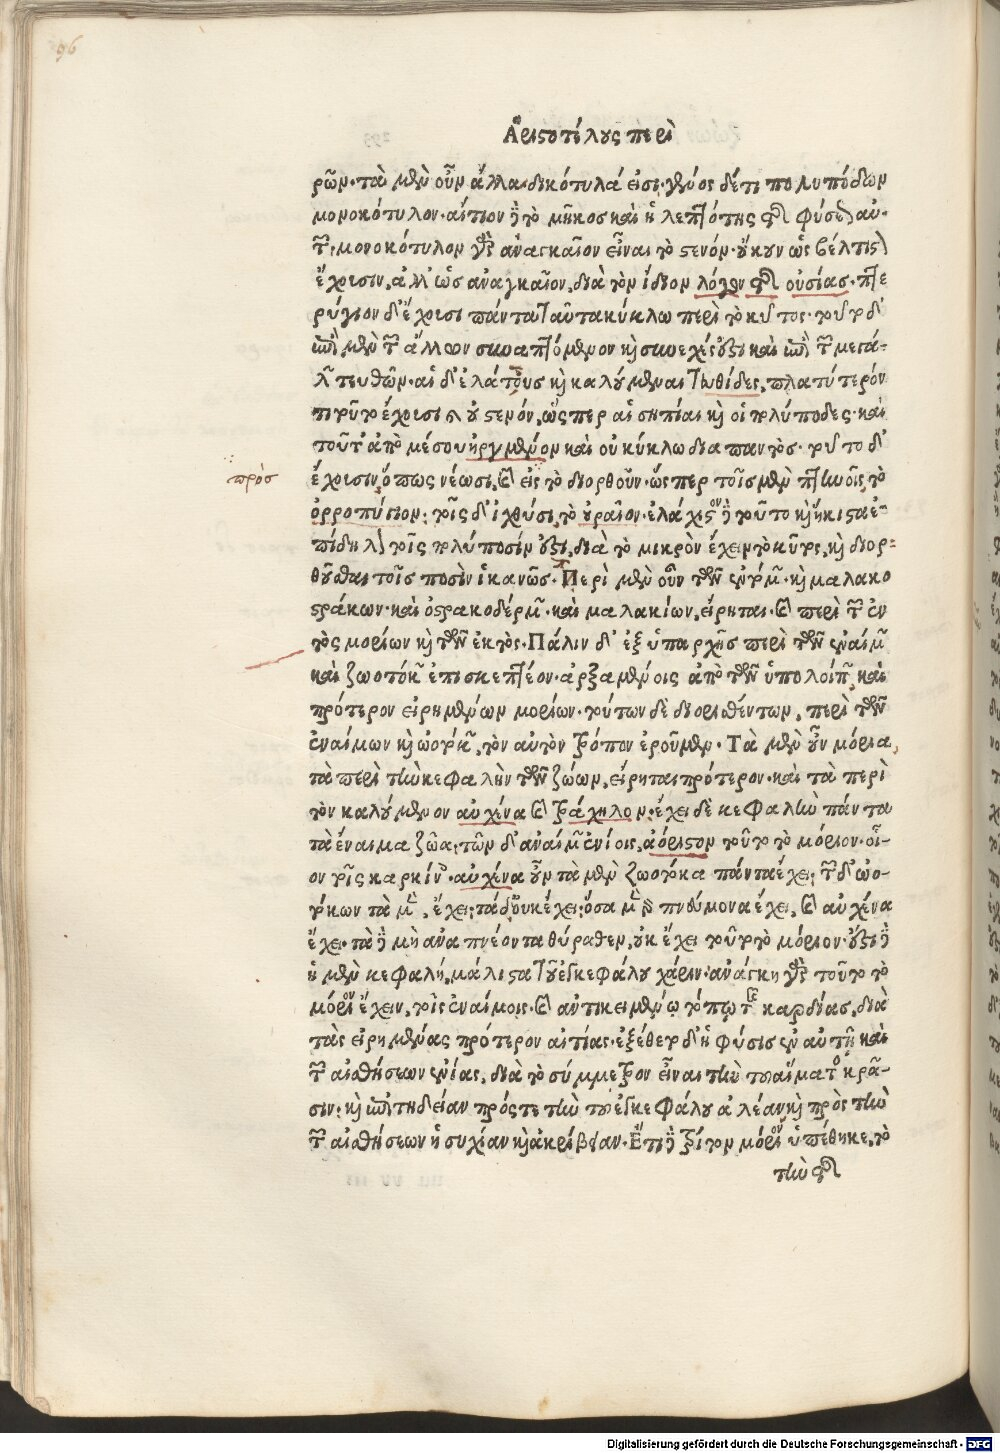 96
Ἀριστοτέλους περὶ
ρῶν· τὰ μὲν οὖν ἄλλα δικότυλά εἰσι· γένος δέ τι πολυπόδων
μονοκότυλον· αἴτιον δὲ τὸ μῆκος καὶ ἡ λεπτότης τῆς φύσεως αὐ-
τῶν· μονοκότυλον γὰρ ἀναγκαῖον εἶναι τὸ στενόν· οὔκουν ὡς βέλτιστον
ἔχουσιν, ἀλλ' ὡς ἀναγκαῖον, διὰ τὸν ἴδιον λόγον τῆς οὐσίας· πτε
ρύγιον δ' ἔχουσι πάντα ταῦτα κύκλω περὶ τὸ κύτος· τοῦτο δ'
ἐπὶ μὲν τῶν ἄλλων συναπτόμενον καὶ συνεχές ἐστι καὶ ἐπὶ τῶν μεγά-
λων τευθῶν· αἱ δ' ἐλάττους καὶ καλούμεναι τευθίδες, πλατύτερόν
τι τοῦτο ἔχουσι καὶ οὐ στενόν, ὥσπερ αἱ σηπίαι καὶ οἱ πολύποδες· καὶ
τοῦτ' ἀπὸ μέσου ἠργμένον καὶ οὐ κύκλω διὰ παντὸς· τοῦτο δ'
πρὸς
ἔχουσιν ὅπως νέωσι, καὶ εἰς τὸ διορθοῦν· ὥσπερ τοῖς μὲν πτηνοῖς, τὸ
ὀρροπύγιον· τοῖς δ' ἰχθύσι, τὸ οὐραῖον· ἐλάχιστον δὲ τοῦτο καὶ ἥκιστα ἐ-
πίδηλον τοῖς πολύποσίν ἐστι, διὰ τὸ μικρὸν ἔχειν τὸ κύτος, καὶ διορ-
θοῦσθαι τοῖς ποσὶν ἱκανῶς· Περὶ μὲν οὖν τῶν ἐντόμων καὶ μαλακο
στράκων· καὶ ὀστρακοδέρμων· καὶ μαλακίων, εἴρηται· καὶ περὶ τῶν ἐν
τὸς μορίων καὶ τῶν ἐκτὸς· Πάλιν δ' ἐξ ὑπαρχῆς περὶ τῶν ἐναίμων
καὶ ζωοτόκων ἐπισκεπτέον· ἀρξαμένοις ἀπὸ τῶν ὑπολοίπων καὶ
πρότερον εἰρημένων μορίων· τούτων δὲ διορισθέντων, περὶ τῶν
ἐναίμων καὶ ὠοτόκων, τὸν αὐτὸν τρόπον ἐροῦμεν· Τὰ μὲν οὖν μόρια,
τὰ περὶ τὴν κεφαλὴν τῶν ζώων, εἴρηται πρότερον· καὶ τὰ περὶ
τὸν καλούμενον αὐχένα καὶ τράχηλον· ἔχει δὲ κεφαλὴν πάντα
τὰ ἔναιμα ζῶα· τῶν δ' ἀναίμων ἐνίοις, ἀόριστον τοῦτο τὸ μόριον· οἷ-
ον τοῖς καρκίνοις· αὐχένα οὖν τὰ μὲν ζωοτόκα πάντα ἔχει· τῶν δ' ὠο-
τόκων τὰ μὲν, ἔχει· τὰ δ' οὐκ ἔχει· ὅσα μὲν γὰρ πνεύμονα ἔχει, καὶ αὐχένα
ἔχει· τὰ δὲ μὴ ἀναπνέοντα θύραθεν, οὐκ ἔχει τοῦτο τὸ μόριον· ἔστι δὲ
ἡ μὲν κεφαλή, μάλιστα τοῦ ἐγκεφάλου χάριν· ἀνάγκη γὰρ τοῦτο τὸ
μόριον ἔχειν, τοῖς ἐναίμοις· καὶ ἀντικειμένω τόπω τῆς καρδίας, διὰ
τὰς εἰρημένας πρότερον αἰτίας· ἐξέθετο δ' ἡ φύσις ἐν αὐτῇ καὶ
τῶν αἰσθήσεων ἐνίας, διὰ τὸ σύμμετρον εἶναι τὴν τοῦ αἵματος κρᾶ-
σιν· καὶ ἐπιτηδείαν πρός τε τὴν τοῦ ἐγκεφάλου ἀλέαν καὶ πρὸς τὴν
τῶν αἰσθήσεων ἡσυχίαν καὶ ἀκρίβειαν· Ἔτι δὲ τρίτον μόριον ὑπέθηκε, τὸ
τὴν τῆς
Digitalisierung gefördert durch die Deutsche Forschungsgemeinschaft - DFG